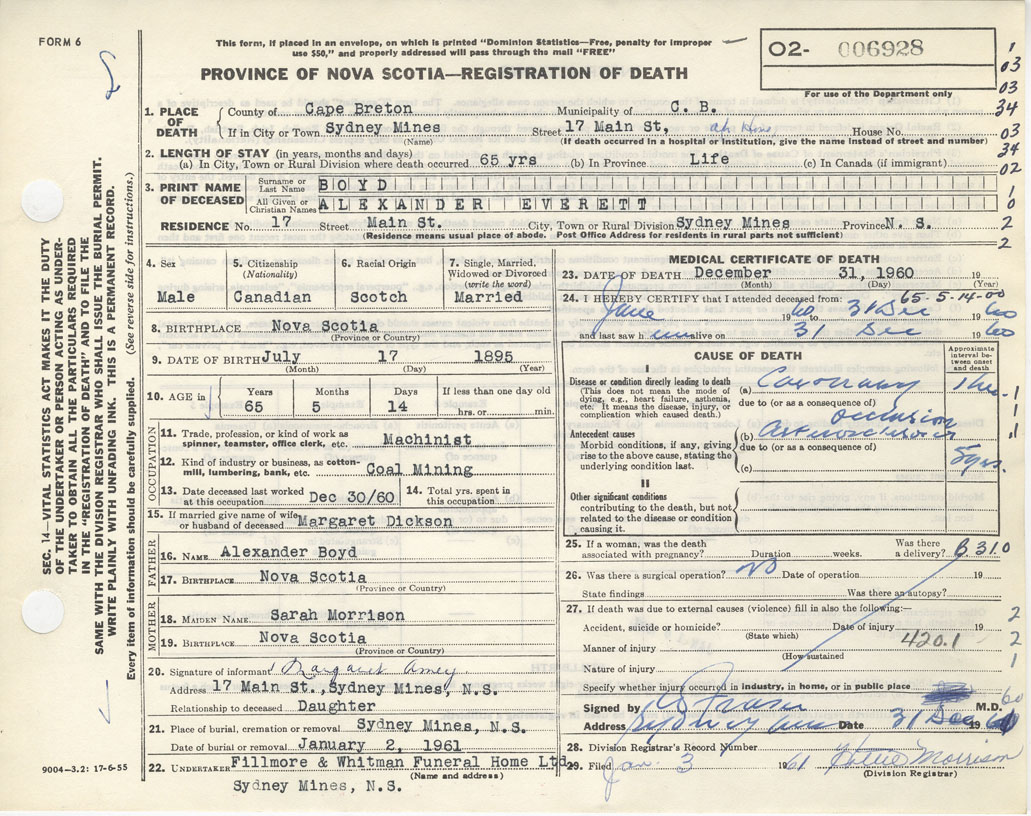 FORM 6
This form, if placed in an envelope, on which is printed "Dominion Statistics—Free, penalty for improper
use $50," and properly addressed will pass through the mail "FREE"
O2- 006928
For use of the Department only
PROVINCE OF NOVA SCOTIA—REGISTRATION OF DEATH
1. PLACE OF DEATH
County of Cape Breton Municipality of C. B.
If in City or Town Sydney Mines Street 17 Main St, House No.
(Name) (If death occurred in a hospital or institution, give the name instead of street and number)
2. LENGTH OF STAY (in years, months and days)
(a) In City, Town or Rural Division where death occurred 65 yrs (b) In Province Life (c) In Canada (if immigrant)
3. PRINT NAME OF DECEASED
Surname or Last Name BOYD
All Given or Christian Names ALEXANDER EVERETT
RESIDENCE No. 17 Street Main St. City, Town or Rural Division Sydney Mines Province N. S.
(Residence means usual place of abode. Post Office Address for residents in rural parts not sufficient)
1
03
03
34
03
34
02
1
0
2
2
SEC. 14—VITAL STATISTICS ACT MAKES IT THE DUTY
OF THE UNDERTAKER OR PERSON ACTING AS UNDER-
TAKER TO OBTAIN ALL THE PARTICULARS REQUIRED
IN THE "REGISTRATION OF DEATH" AND TO FILE THE
SAME WITH THE DIVISION REGISTRAR WHO SHALL ISSUE THE BURIAL PERMIT.
WRITE PLAINLY WITH UNFADING INK. THIS IS A PERMANENT RECORD.
Every item of information should be carefully supplied. (See reverse side for instructions.)
4. Sex Male
5. Citizenship (Nationality) Canadian
6. Racial Origin Scotch
7. Single, Married, Widowed or Divorced (write the word) Married
8. BIRTHPLACE Nova Scotia
(Province or Country)
9. DATE OF BIRTH July 17 1895
(Month) (Day) (Year)
10. AGE in Years Months Days If less than one day old
65 5 14 hrs. or min.
OCCUPATION
11. Trade, profession, or kind of work as
spinner, teamster, office clerk, etc. Machinist
12. Kind of industry or business, as cotton-
mill, lumbering, bank, etc. Coal Mining
13. Date deceased last worked
at this occupation. Dec 30/60
14. Total yrs. spent in
this occupation.
15. If married give name of wife
or husband of deceased Margaret Dickson
FATHER
16. NAME Alexander Boyd
17. BIRTHPLACE Nova Scotia
(Province or Country)
MOTHER
18. MAIDEN NAME Sarah Morrison
19. BIRTHPLACE Nova Scotia
(Province or Country)
20. Signature of informant Margaret
Address 17 Main St., Sydney Mines, N.S.
Relationship to deceased Daughter
21. Place of burial, cremation or removal Sydney Mines, N.S.
Date of burial or removal January 2, 1961
22. UNDERTAKER Fillmore & Whitman Funeral Home Ltd.
(Name and address)
Sydney Mines, N.S.
9004—3.2: 17-6-55
MEDICAL CERTIFICATE OF DEATH
23. DATE OF DEATH December 31, 1960 19
(Month) (Day) (Year)
65-5-14-00
24. I HEREBY CERTIFY that I attended deceased from:
June 1960 31 Dec 1960
and last saw him alive on 31 Dec 1960
CAUSE OF DEATH
Approximate interval between onset and death
I
Disease or condition directly leading to death
(This does not mean the mode of dying, e.g., heart failure, asthenia, etc. It means the disease, injury, or complication which caused death.)
(a) Coronary
due to (or as a consequence of)
occlusion
Antecedent causes
Morbid conditions, if any, giving
rise to the above cause, stating the
underlying condition last.
(b)
due to (or as a consequence of) 5 yrs.
(c)
II
Other significant conditions
contributing to the death, but not
related to the disease or condition
causing it.
25. If a woman, was the death
associated with pregnancy? Duration weeks. Was there a delivery? B.31.0
26. Was there a surgical operation? no Date of operation 19
State findings Was there an autopsy?
27. If death was due to external causes (violence) fill in also the following:—
Accident, suicide or homicide? Date of injury 19
(State which)
Manner of injury 420.1
(How sustained
Nature of injury
Specify whether injury occurred in industry, in home, or in public place
Signed by Fraser M.D.
Address Sydney Mines Date 31 Dec 1960
28. Division Registrar's Record Number
29. Filed Jan. 3 1961 Morrison
(Division Registrar)
2
2
1
60